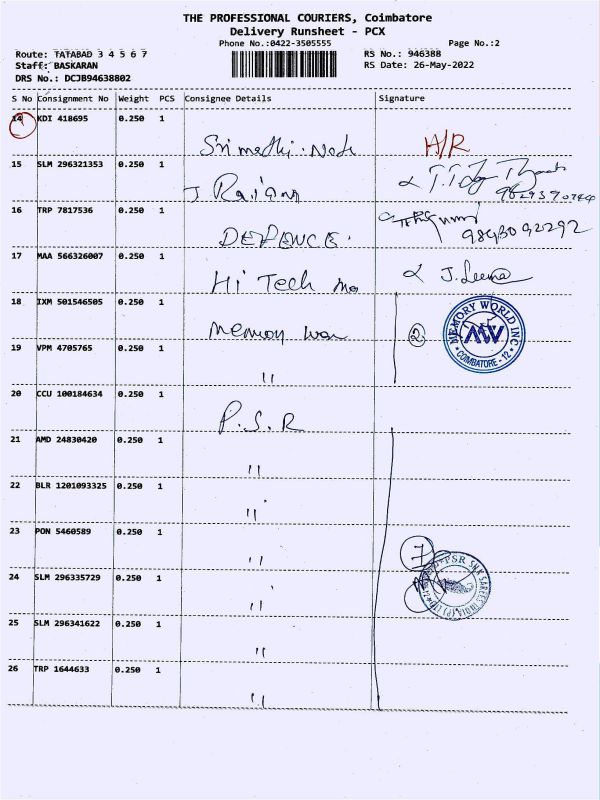 THE PROFESSIONAL COURIERS, Coimbatore
Delivery Runsheet - PCX
Phone No.:0422-3505555
Page No.:2
Route: TATABAD 3 4 5 6 7
RS No.: 946388
Staff: BASKARAN
RS Date: 26-May-2022
DRS No.: DCJB94638802
S No Consignment No Weight PCS Consignee Details Signature
14 KDI 418695 0.250 1
A/R
15 SLM 296321353 0.250 1
16 TRP 7817536 0.250 1
DEFENCE.
9843092292
17 MAA 566326007 0.250 1
Hi Tech
J. Leena
18 IXM 501546505 0.250 1
memory
2
MEMORY WORLD INC
MW
COIMBATORE - 12
19 VPM 4705765 0.250 1
"
20 CCU 100184634 0.250 1
P.S.R
21 AMD 24830420 0.250 1
"
22 BLR 1201093325 0.250 1
"
23 PON 5460589 0.250 1
"
7
24 SLM 296335729 0.250 1
"
PSR SILK SAREES INDIA (P) LTD
25 SLM 296341622 0.250 1
"
26 TRP 1644633 0.250 1
"